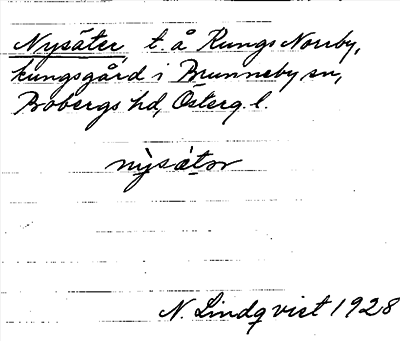 Nysäter t. å Kungs Norrby,
kungsgård i Brunneby sn,
Bobergs hd, Österg. l.
nỳsä̀tər
N. Lindqvist 1928